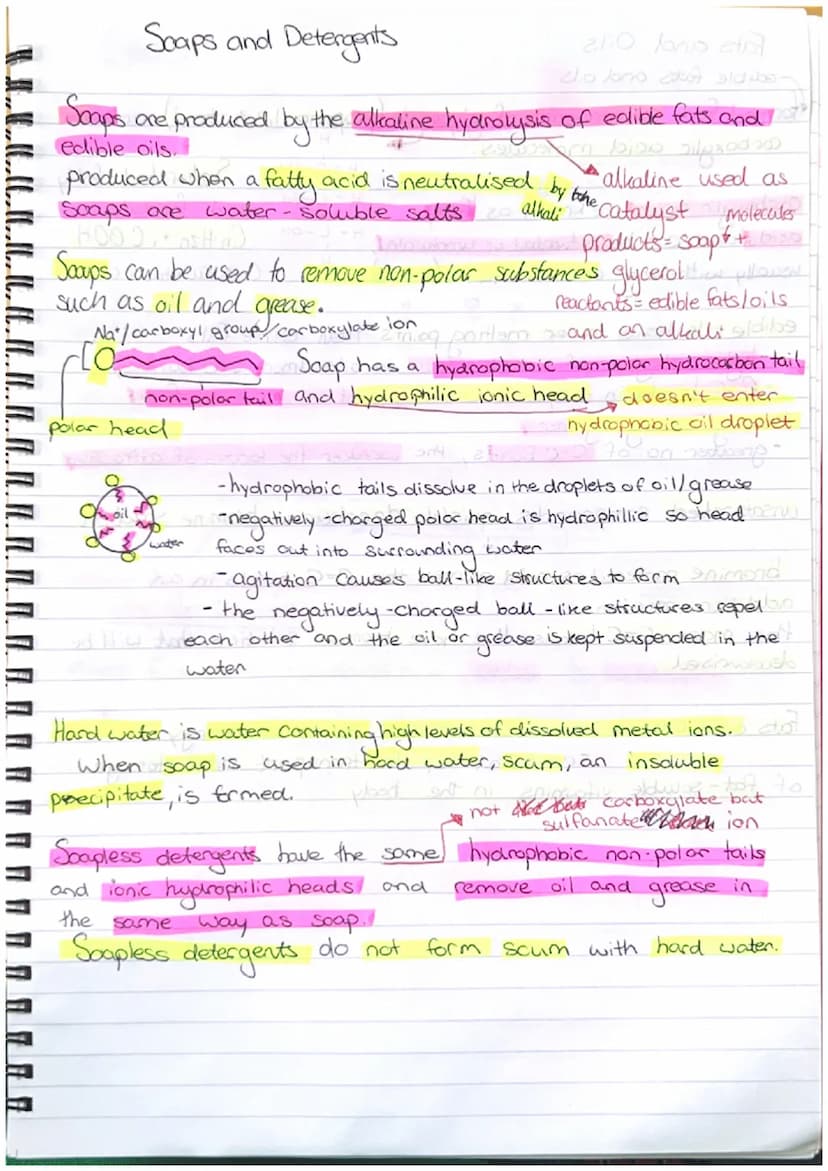 Soaps and Detergents
Soaps are produced by the alkaline hydrolysis of edible fats and
edible oils.
produced when a fatty acid is neutralised by the
alkali
soaps are water-soluble salts
alkaline used as
catalyst molecules
products = soap +
glycerol
reactants = edible fats/oils
and an alkali
Soaps can be used to remove non-polar substances
such as oil and grease.
Na⁺/carboxyl group/carboxylate ion
Soap has a hydrophobic non-polar hydrocarbon tail
non-polar tail and hydrophilic ionic head doesn't enter
polar head hydrophobic oil droplet
oil
water
-hydrophobic tails dissolve in the droplets of oil/grease
-negatively-charged polar head is hydrophillic so head
faces out into surrounding water
-agitation causes ball-like structures to form
- the negatively-charged ball-like structures repel
each other and the oil or grease is kept suspended in the
water
Hard water is water containing high levels of dissolved metal ions.
When soap is used in hard water, scum, an insoluble
precipitate, is formed.
not carboxylate but
sulfanate ion
Soapless detergents have the same hydrophobic non-polar tails
and ionic hydrophilic heads and remove oil and grease in
the same way as soap.
Soapless detergents do not form scum with hard water.